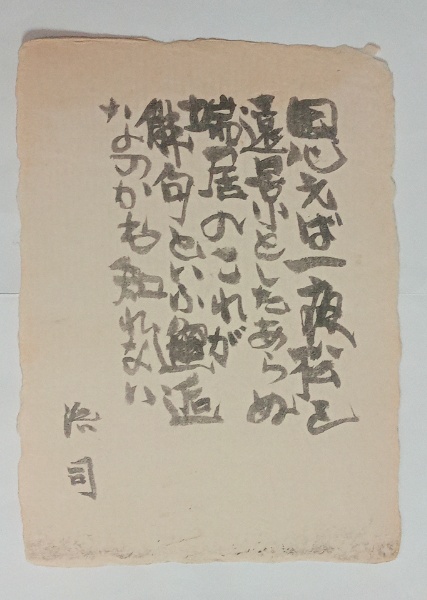 思えば一夜松を
遠景としたあらぬ
端居のこれが
俳句といふ邂逅
なのかも知れない
浩司